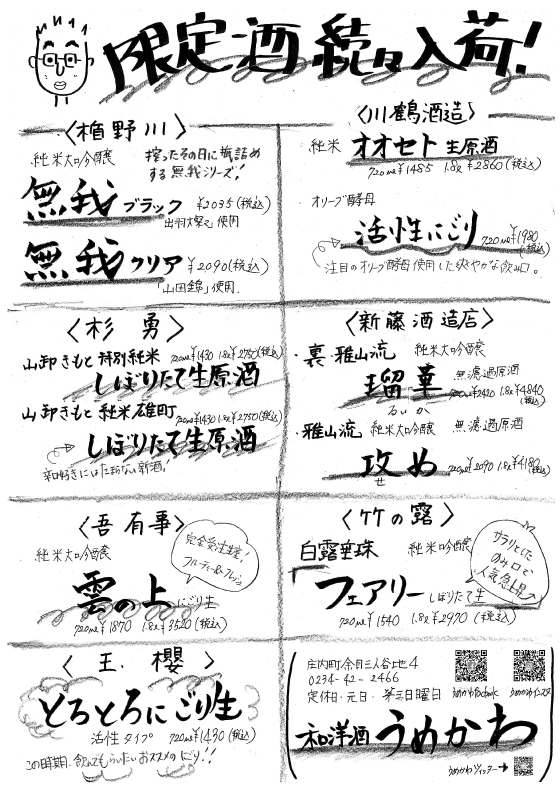 限定酒続々入荷!
〈楯野川〉
純米大吟醸
搾ったその日に瓶詰め
する無我シリーズ!
無我ブラック ¥2035(税込)
出羽燦々使用
無我クリア ¥2090(税込)
「山田錦」使用.
〈川鶴酒造〉
純米 オオセト生原酒
720ml¥1485 1.8L¥2860(税込)
オリーブ酵母
活性にごり 720ml¥1980(税込)
注目のオリーブ酵母使用した爽やかな飲み口。
〈杉勇〉
山卸きもと特別純米 720ml¥1430 1.8L¥2750(税込)
しぼりたて生原酒
山卸きもと純米雄町 720ml¥1430 1.8L¥2750(税込)
しぼりたて生原酒
辛口好きにはたまらない新酒!
〈新藤酒造店〉
・裏・雅山流 純米大吟醸
瑠華 無濾過原酒
るか 720ml¥2420 1.8L¥4840(税込)
・雅山流 純米大吟醸 無濾過原酒
攻め 720ml¥2090 1.8L¥4180(税込)
せ
〈吾有事〉
純米大吟醸
完全受注生産!
フルーティー&フレッシュ
雲の上 にごり生
720ml¥1870 1.8L¥3520(税込)
〈竹の露〉
白露垂珠 純米吟醸
サラリとした
のみ口で
人気急上昇
フェアリー しぼりたて生
720ml¥1540 1.8L¥2970(税込)
〈王櫻〉
とろとろにごり生
活性タイプ 720ml¥1430(税込)
この時期、飲んでもらいたいおススメのにごり!!
庄内町余目三人谷地4
0234-42-2466
定休日・元日・第三日曜日
うめかわFacebook うめかわインスタ
和洋酒うめかわ
うめかわツイッター→